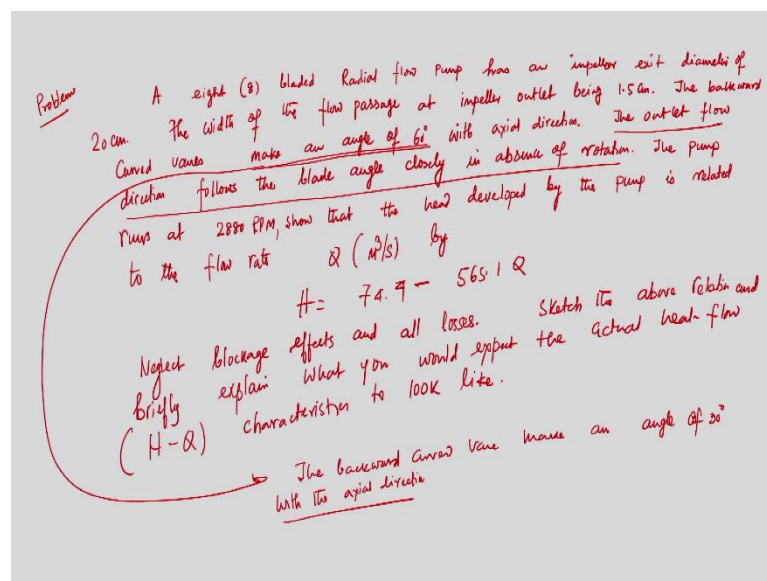 Problem
A eight (8) bladed Radial flow pump has an impeller exit diameter of
20 cm. The width of the flow passage at impeller outlet being 1.5 cm. The backward
Curved vanes make an angle of 60° with axial direction. The outlet flow
direction follows the blade angle closely in absence of rotation. The pump
runs at 2880 RPM, show that the head developed by the pump is related
to the flow rate Q (m³/s) by
H = 74.9 - 565.1 Q
Neglect blockage effects and all losses. Sketch the above relation and
briefly explain what you would expect the actual head-flow
(H-Q) characteristics to look like.
The backward curved vane make an angle of 30°
with the axial direction